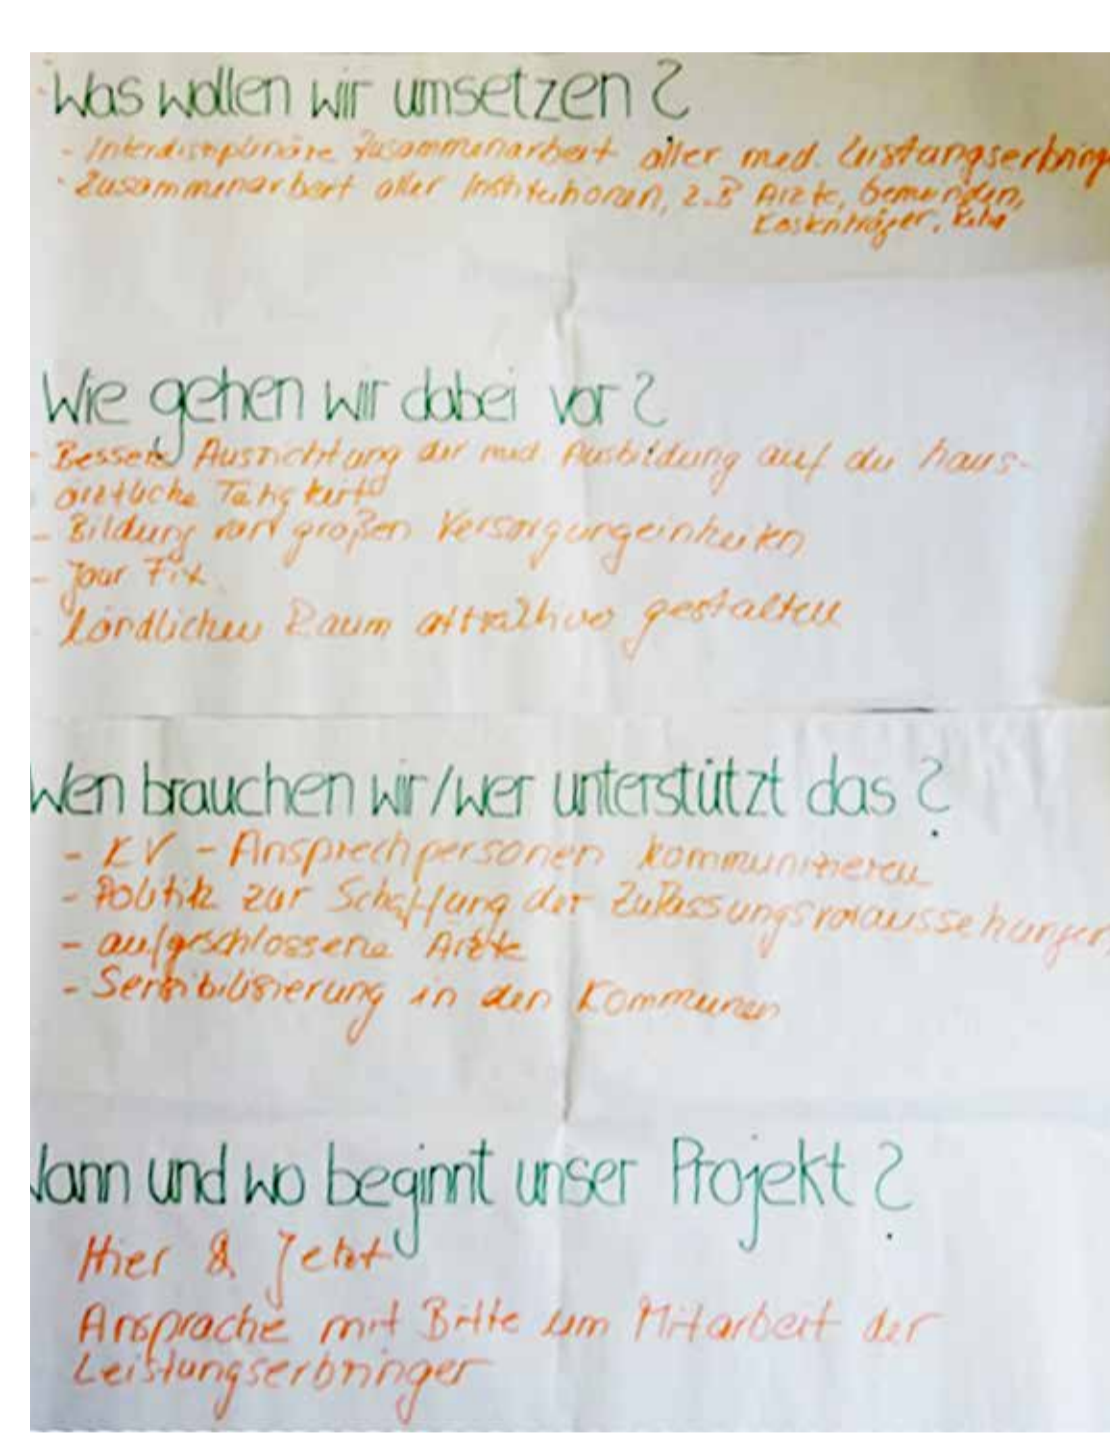 Was wollen wir umsetzen?
- Interdisziplinäre Zusammenarbeit aller med. Leistungserbring
- Zusammenarbeit aller Institutionen, z.B Ärzte, Gemeinden,
Kostenträger, Reha
Wie gehen wir dabei vor?
- Bessere Ausrichtung der med. Ausbildung auf die haus-
ärztliche Tätigkeit
- Bildung von großen Versorgungseinheiten
- Jour Fix
- Ländlichen Raum attraktiver gestalten
Wen brauchen wir/wer unterstützt das?
- KV - Ansprechpersonen kommunizieren
- Politik zur Schaffung der Zulassungsvoraussetzungen
- aufgeschlossene Ärzte
- Sensibilisierung in den Kommunen
Wann und wo beginnt unser Projekt?
Hier & Jetzt
Ansprache mit Bitte um Mitarbeit der
Leistungserbringer